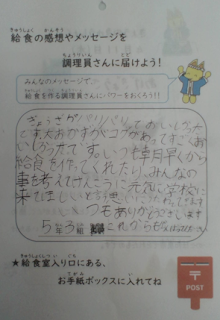 給食の感想やメッセージを
調理員さんに届けよう！
みんなのメッセージで
給食を作る調理員さんにパワーをおくろう！！
ぎょうざがパリパリしておいしかった
です。
おいしかったです。いつも朝早くから
給食を作ってくれたり、みんなの
事を考えてけんこうで元気に学校に
来てほしいと
つもありがとうございます
5年3組
これからも
★給食室入り口にある、
お手紙ボックスに入れてね
POST